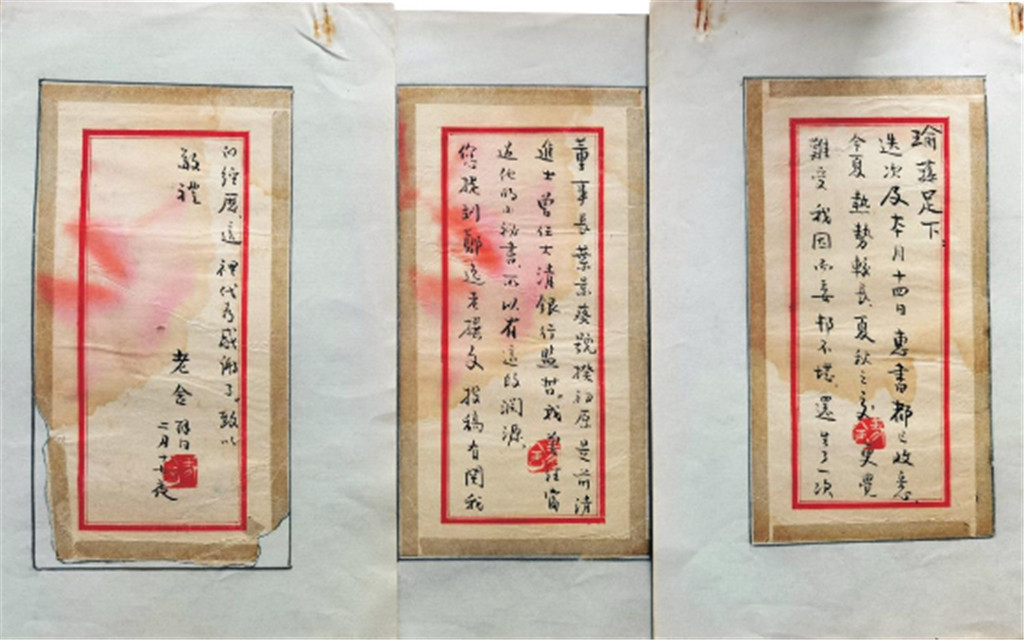 瑜蓀足下
迭次及本月十四日惠書都已收悉
今夏熱勢較長夏秋之交更覺
難受我因而委頓不堪還生了一次
董事長葉景葵號揆初原是前清
進士曾任大清銀行監督我曾任
過他的小秘書所以有這段淵源
您提到鄭逸老撰文投稿有関我
的經歷這裡代為感謝了致以
敬禮
老舍
二月十七夜